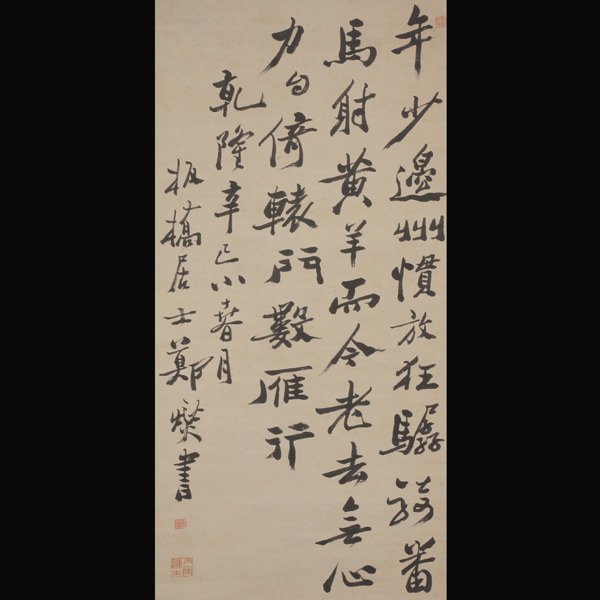 年少邊州慣放狂驏騎番
馬射黃羊而今老去無心
力自倚轅門數雁行
乾隆辛巳小春月
板橋居士鄭燮書